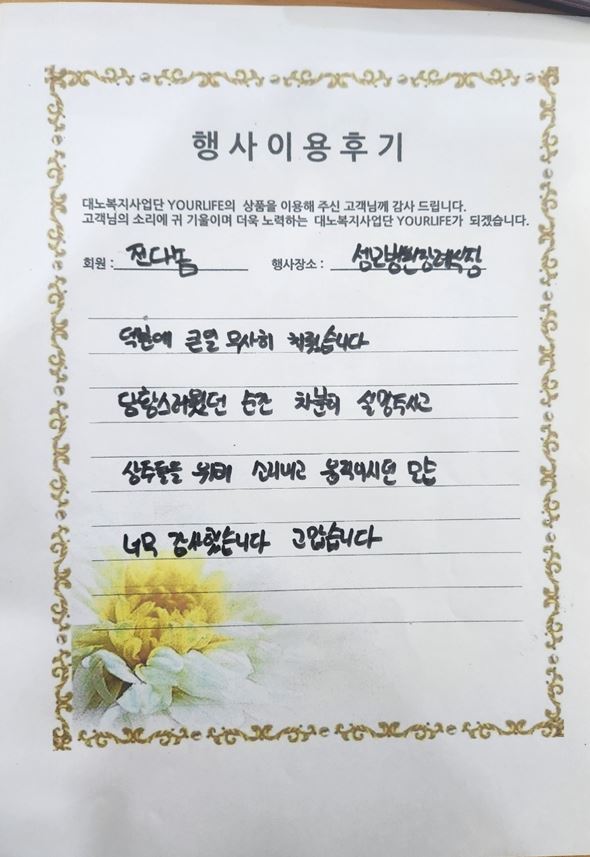 행사이용후기
대노복지사업단 YOURLIFE의 상품을 이용해 주신 고객님께 감사 드립니다.
고객님의 소리에 귀 기울이며 더욱 노력하는 대노복지사업단 YOURLIFE가 되겠습니다.
회원 : 전다솜 행사장소 :
덕분에 큰일 무사히 치뤘습니다
당황스러웠던 순간 차분히 설명주시고
상주들을 위해 소리내고 움직이시던 모습
너무 감사했습니다 고맙습니다